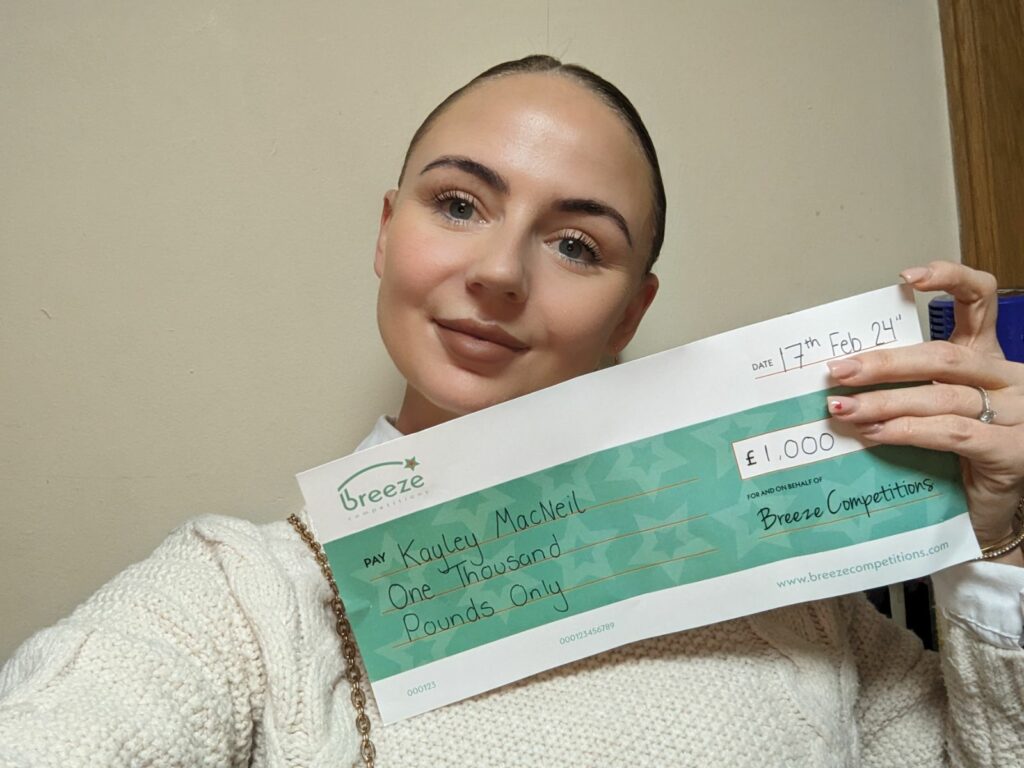 DATE 17th Feb 24"
breeze
competitions
£ 1,000
PAY Kayley MacNeil
One Thousand
Pounds Only
FOR AND ON BEHALF OF
Breeze Competitions
www.breezecompetitions.com
000123
000123456789